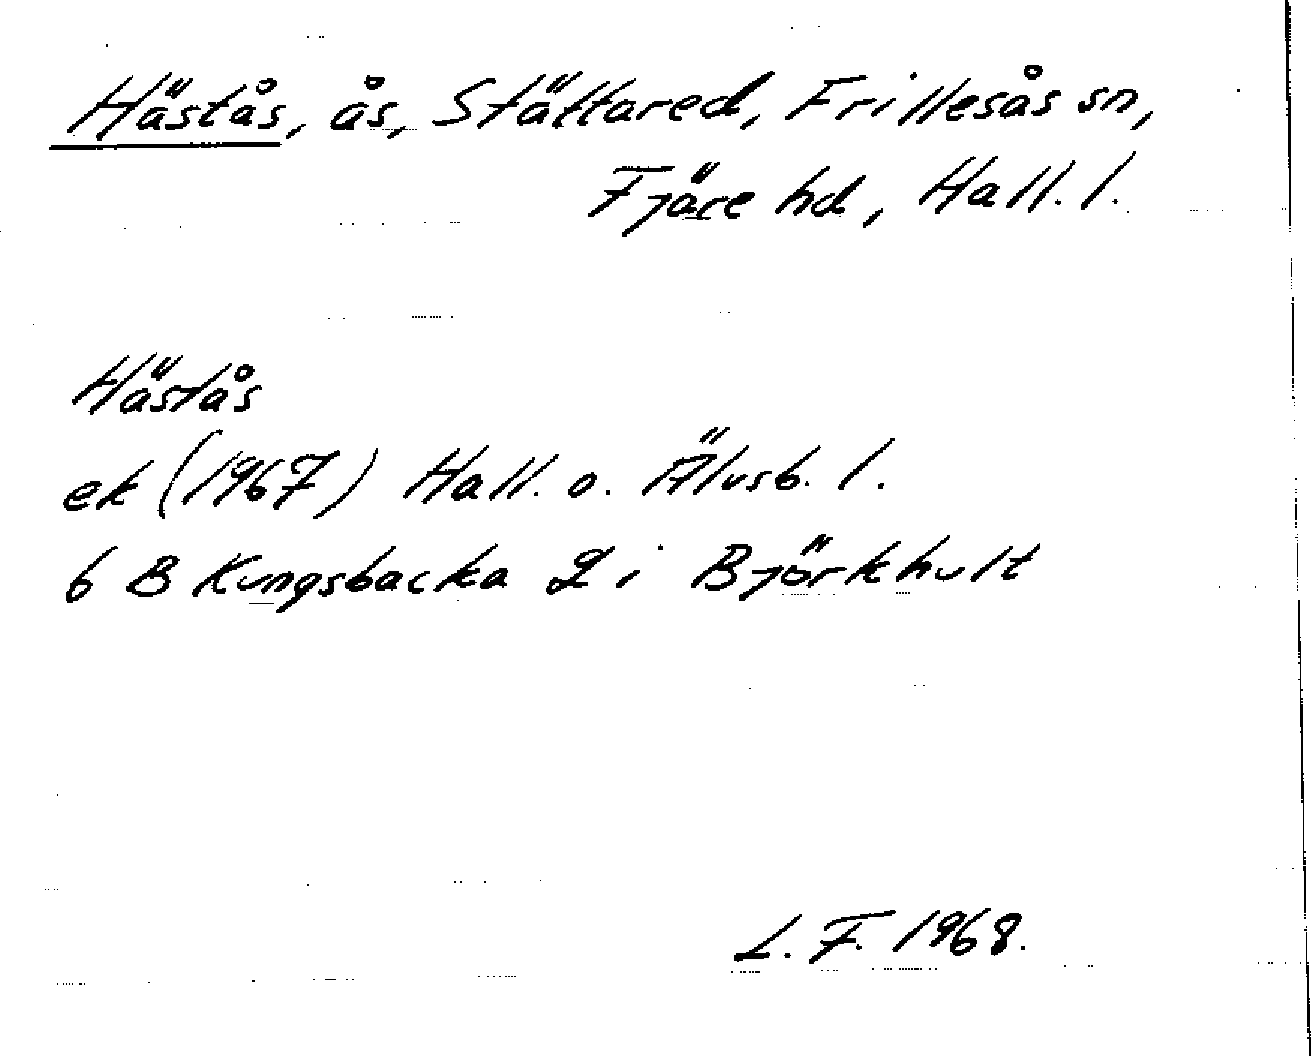 Hästås, ås, Stättared, Frillesås sn,
Fjäre hd, Hall. l.
Hästås
ek (1967) Hall. o. Älvsb. l.
6 B Kungsbacka 2 i Björkhult
L. F. 1968.